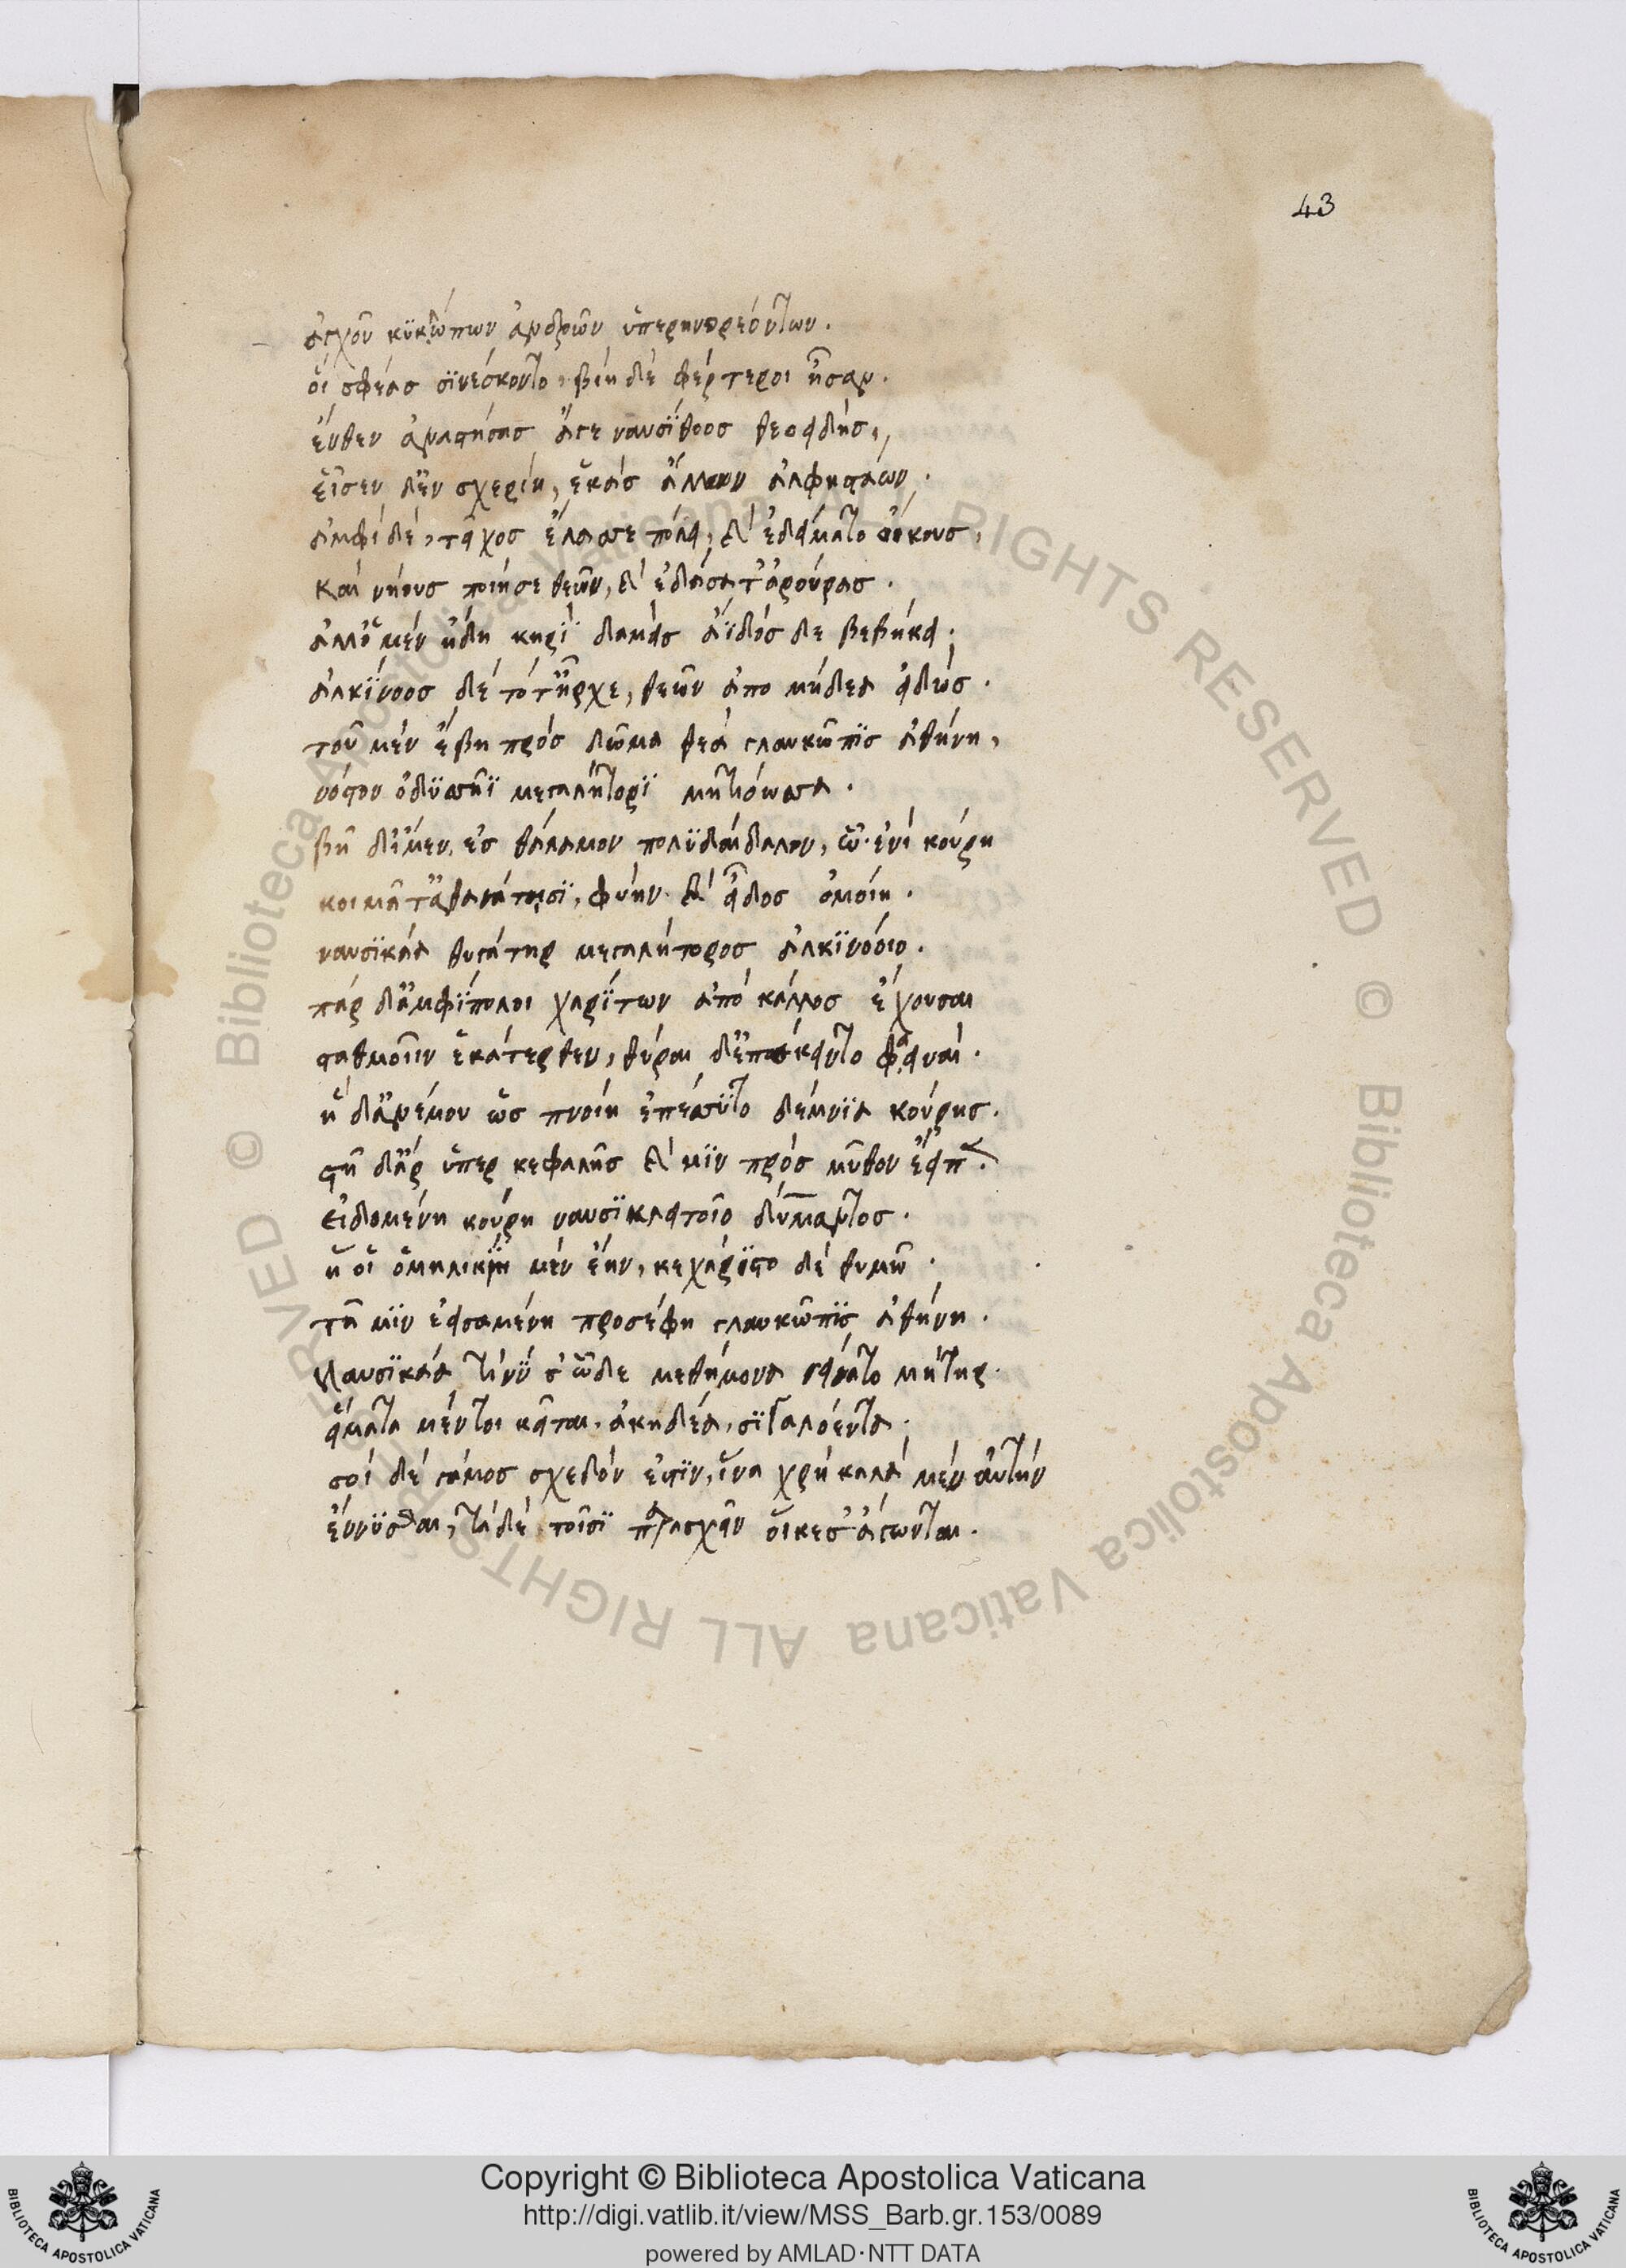 43
ἀγχοῦ κϋκλώπων ἀνδρῶν ὑπερηνορεόντων.
οἵ σφέας σϊνέσκοντο, βίη δὲ φέρτεροι ἦσαν.
ἔνθεν ἀναστήσας ἄγε ναυσΐθοος θεοειδὴς,
εἷσεν δ' ἐν σχερίη, ἑκὰς ἄλλων ἀλφηστάων.
ἀμφὶ δὲ, τεῖχος ἔλασσε πόλει, καὶ ἐδείματο οἴκους,
καὶ νήους ποίησε θεῶν, καὶ ἐδάσατ' ἀρούρας.
ἀλλ' ὁ μὲν ἤδη κηρὶ̈ δαμεὶς ἄϊδόσδε βεβήκει.
ἀλκΐνοος δὲ τότ' ἦρχε, θεῶν ἀπο μήδεα εἰδώς.
τοῦ μὲν ἔβη πρὸς δῶμα θεὰ γλαυκῶπϊς ἀθήνη,
νόστον ὀδϋσσῆϊ μεγαλήτορϊ μητιόωσα.
βῆ δ' ἴμεν ἐς θάλαμον πολϋδαίδαλον, ᾧ ἐνὶ κούρη
κοιμᾶτ' ἀθανάτησϊ, φυὴν καὶ εἶδος ὁμοίη.
ναυσϊκάα θυγάτηρ μεγαλήτορος ἀλκϊνόοιο.
πὰρ δ' ἀμφΐπολοι χαρΐτων ἀπὸ κάλλος ἔχουσαι
σταθμοῖιν ἑκάτερθεν, θύραι δ' ἐπέκειντο φαειναί.
ἡ δ' ἀνέμου ὡς πνοιὴ ἐπέσσϋτο δέμνϊα κούρης.
στῆ δ' ἄρ ὑπερ κεφαλῆς καὶ μϊν πρὸς μῦθον ἔειπε.
εἰδομένη κούρη ναυσϊκλειτοῖο δύμαντος.
ἥ οἱ ὁμηλικίη μὲν ἔην, κεχάρϊστο δὲ θυμῶ.
τῆ μϊν ἐεισαμένη προσέφη γλαυκῶπϊς ἀθήνη.
Ναυσϊκάα τί νύ σ' ὧδε μεθήμονα γείνατο μήτηρ.
εἵματα μέν τοι κεῖται, ἀκηδέα, σϊγαλόεντα.
σοὶ δὲ γάμος σχεδόν ἐστϊν, ἵνα χρὴ καλὰ μὲν αὐτὴν
ἕννϋσθαι, τὰ δὲ τοῖσϊ παρασχεῖν οἵ κέ σ' ἄγωνται.
Copyright © Biblioteca Apostolica Vaticana
http://digi.vatlib.it/view/MSS_Barb.gr.153/0089
powered by AMLAD·NTT DATA